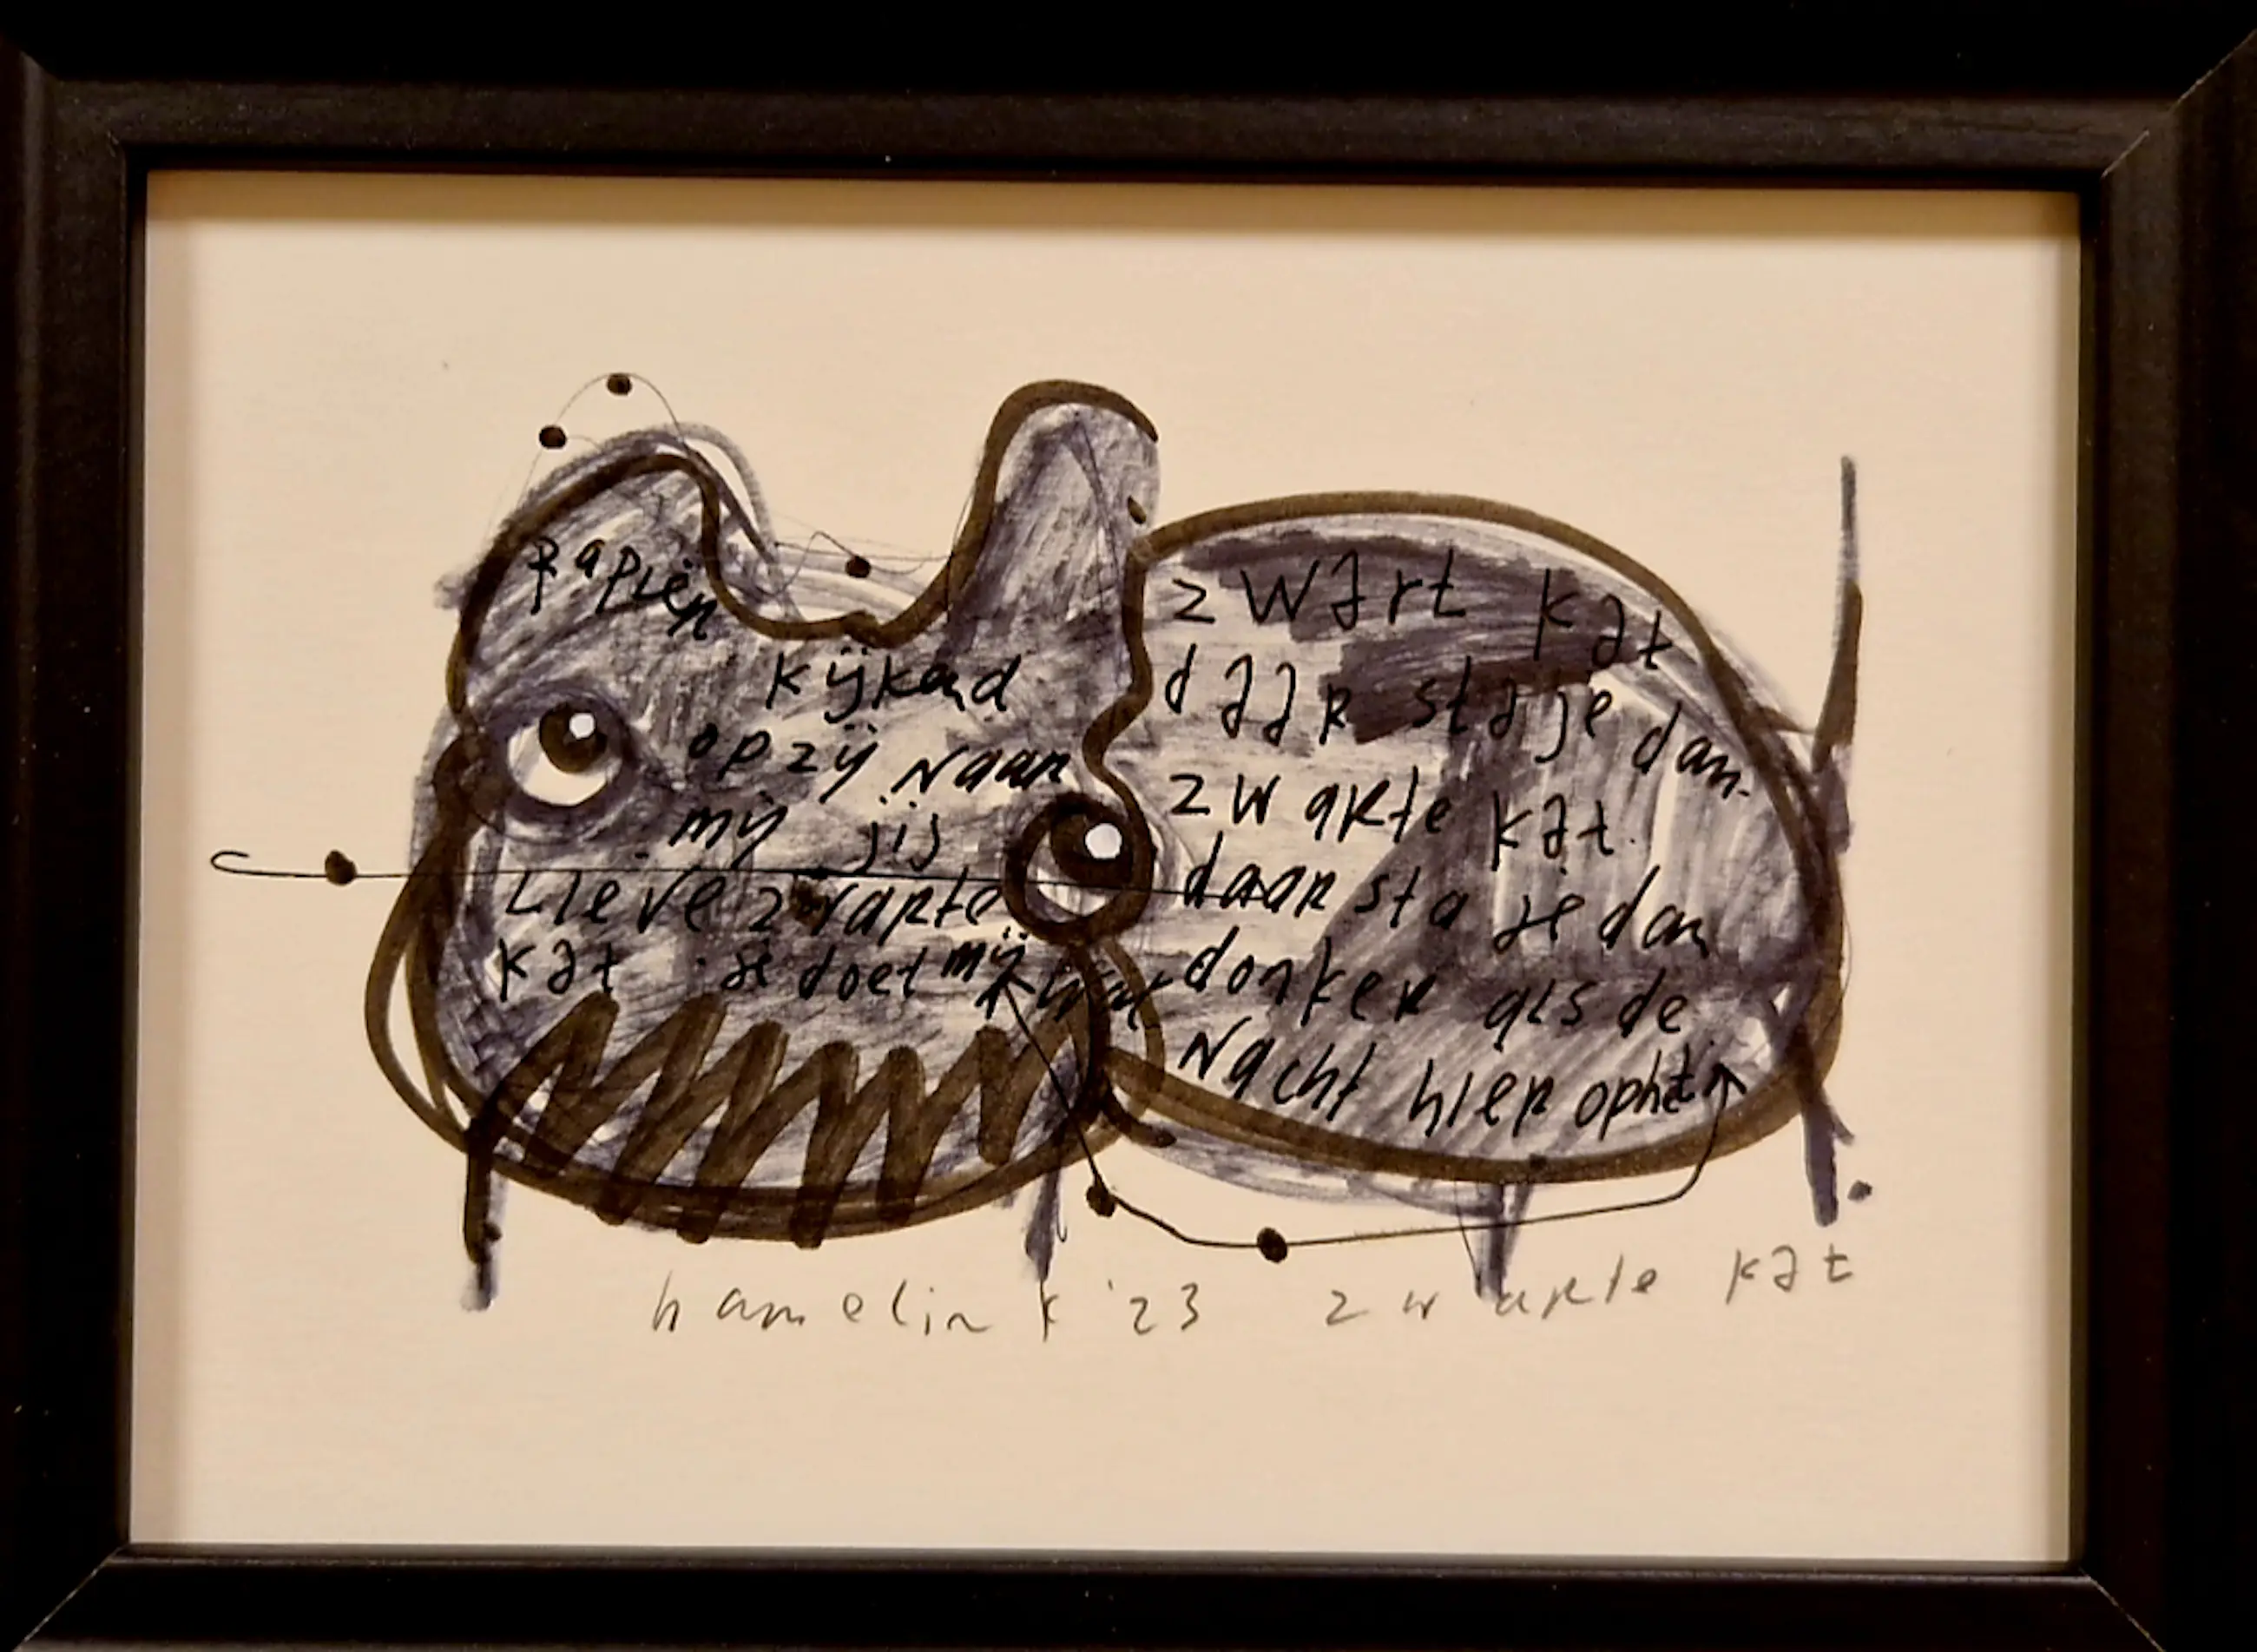 zwart kat
daar sta je dan.
zwarte kat.
daar sta je dan
donker als de
nacht hier op het
papier
kijkend
opzij naar
mij jij
Lieve zwarte
kat je doet mij
hamelink '23 zwarte kat